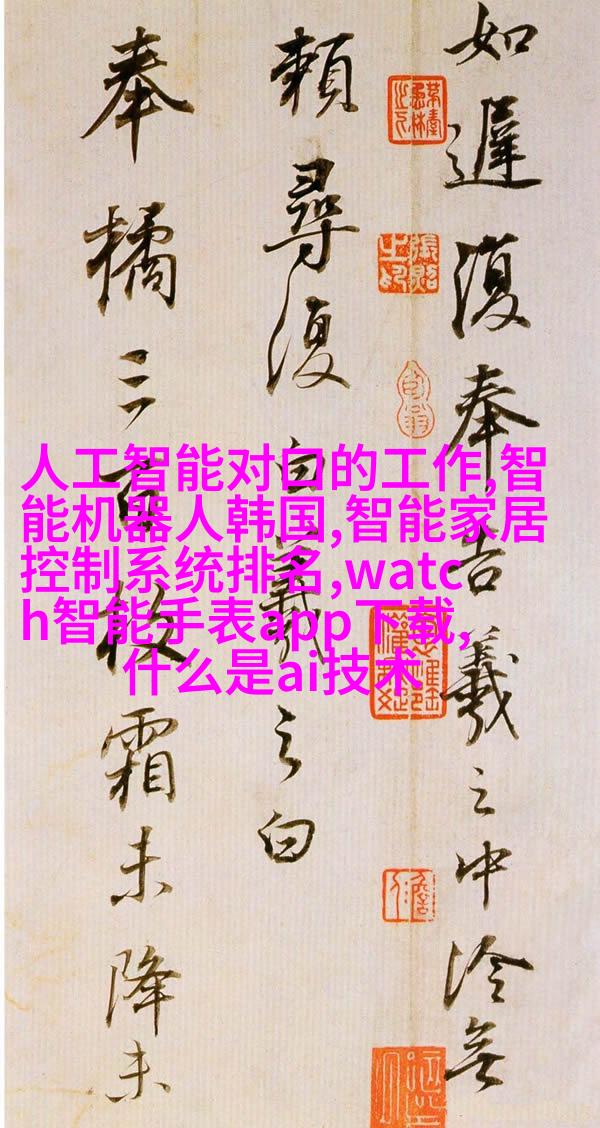 如遲復奉告羲之中冷無
賴尋復白羲之白
奉橘三百枚霜未降未
人工智能对白的工作,智
能机器人韩国,智能家居
控制系统排名,watc
h智能手表app下载,
什么是ai技术